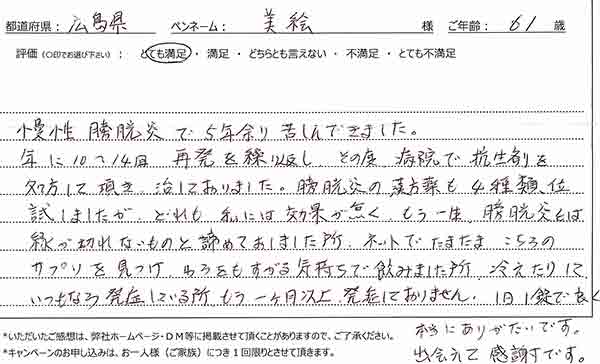 都道府県： 広島県 ペンネーム： 美絵 様 ご年齢： 61 歳
評価（〇印でお選び下さい）： とても満足 ・ 満足 ・ どちらとも言えない ・ 不満足 ・ とても不満足
慢性膀胱炎で5年余り苦しんできました。
年に10〜14回 再発を繰り返し その度 病院で抗生剤を
処方して頂き、治しておりました。膀胱炎の漢方薬も4種類位
試しましたが、どれも私には効果が無く、もう一生、膀胱炎とは
縁が切れないものと諦めておりました所、ネットでたまたまこちらの
サプリを見つけ、わらをもすがる気持ちで飲みました所、冷えたりして
いつもなら発症している所 もう一ヶ月以上、発症しておりません。1日1錠で良く
本当にありがたいです。
出会えて感謝です。
*いただいたご感想は、弊社ホームページ・DM等に掲載させて頂くことがありますので、ご了承ください。
*キャンペーンのお申し込みは、お一人様（ご家族）につき1回限りとさせて頂きます。